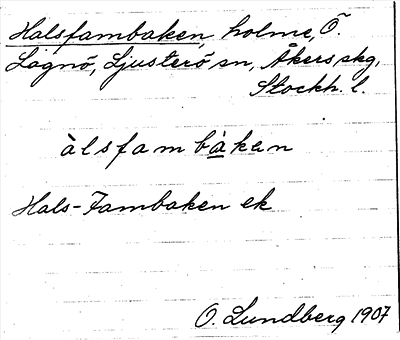 Halsfambaken, holme, Ö.
Lagnö, Ljusterö sn, Åkers skg,
Stockh. l.
àlsfambàkan
Hals-Fambaken ek
O. Lundberg 1907